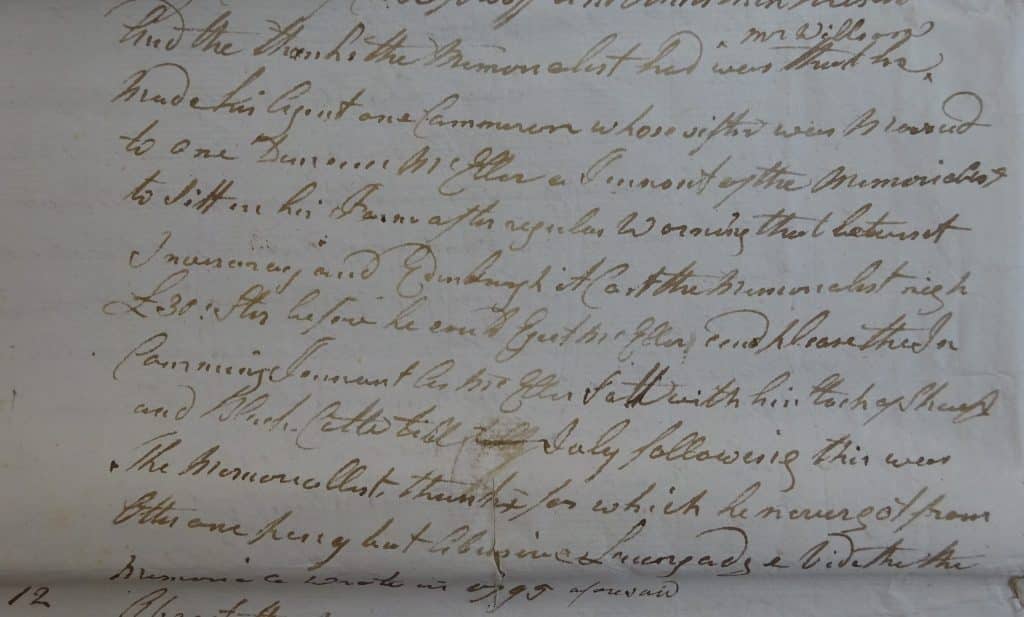 mr Willson
And the thanks the Memorialist had was that he
Made his Agent one Cammeron whose sister was Marved
to one Duncan McEller a Tennant of the Memorialist
to sitt in his Farm after regular Warning that betwixt
Inveraray and Edinburgh it Cost the Memorialist nigh
£30: Ster before he could Eject McEller and please the In
Comming Tennant As McEller Satt with his Stock of Sheep
and Black Cattle till July following this was
The Memoriallists thanks for which he never got from
Otter one peny but Abusive Languadge Vide the the
Memorial wrote in 1795 aforesaid
12